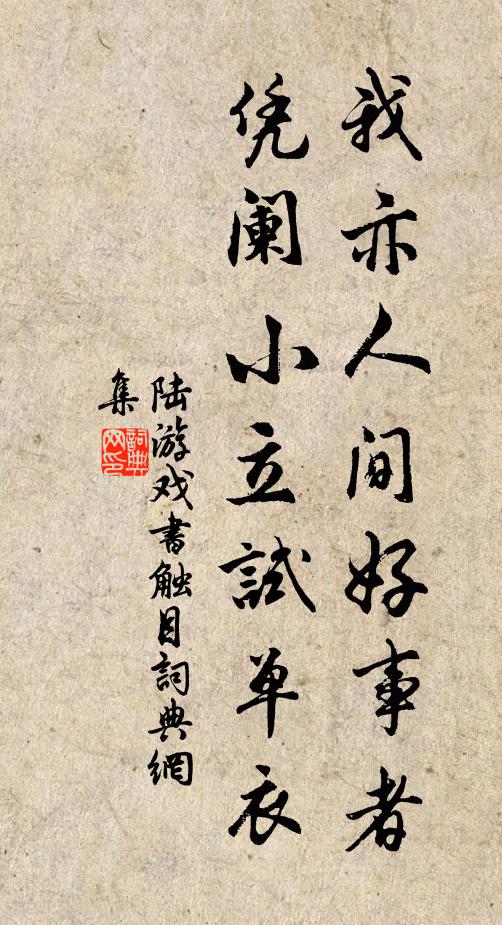 我亦人间好事者
凭阑小立試单衣
陆游戏書触目詞典網
集
詞典
网印